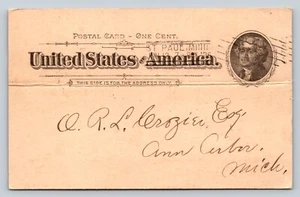 POSTAL CARD - ONE CENT.
ST PAUL, MINN.
United States of America.
THIS SIDE IS FOR THE ADDRESS ONLY.
O. R. L. Crozier, Esq
Ann Arbor,
Mich.